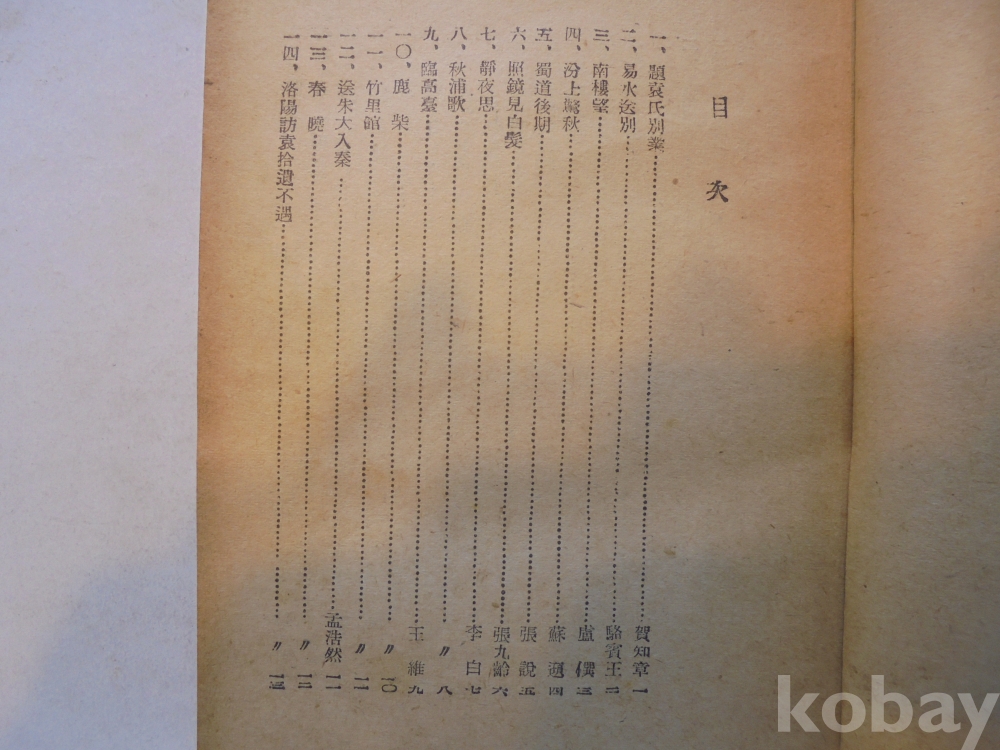 目次
一、題袁氏別業 賀知章 一
二、易水送別 駱賓王 二
三、南樓望 盧僎 三
四、汾上驚秋 蘇頲 四
五、蜀道後期 張說 五
六、照鏡見白髮 張九齡 六
七、靜夜思 李白 七
八、秋浦歌 〃 八
九、臨高臺 王維 九
一〇、鹿柴 〃 一〇
一一、竹里館 〃 一一
一二、送朱大入秦 孟浩然 一一
一三、春曉 〃 一二
一四、洛陽訪袁拾遺不遇 〃 一三
kobay